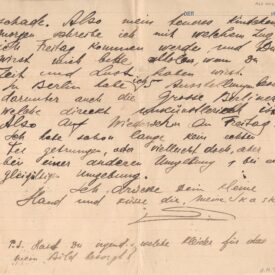 schade. Also mein teures Kindchen
morgen schreibe ich mit welchem Zug
ich Freitag kommen werde und Du
wirst mich bitte abholen, wenn Du
Zeit und Lust haben wirst.
In Berlin habe ich 5 Ausstellungen
darunter auch die Grosse Berliner
welche direkt
Also auf Wiedersehn am Freitag
Ich habe schon lange kein echten
Tee getrunken, oder vielleicht doch, aber
bei einer anderen Umgebung & bei
gleichgültigen Umgebung.
Ich drücke Dein kleine
Hand und küsse die, meine
P.S. Hast Du irgend welche Kleider für das
mein Bild besorgt?